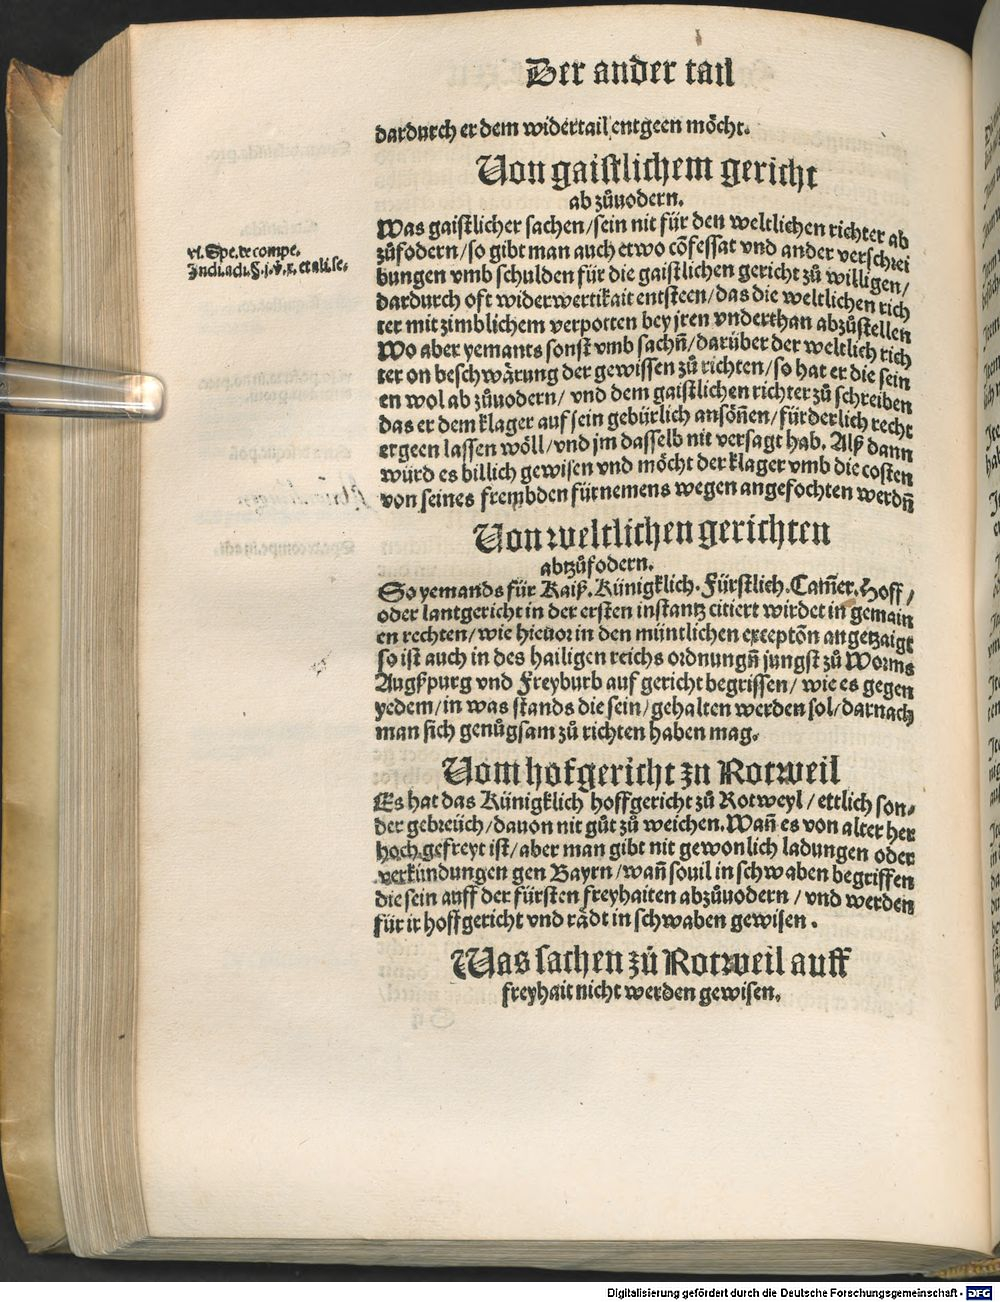 Der ander tail
dardurch er dem widertail entgeen möcht.
Von gaistlichem gericht
ab zůuodern.
Was gaistlicher sachen / sein nit für den weltlichen richter ab
zůfodern / so gibt man auch etwo cõfessat vnd ander verschrei
bungen vmb schulden für die gaistlichen gericht zů willigen /
dardurch oft widerwertikait entsteen / das die weltlichen rich
ter mit zimblichem verpotten bey jren vnderthan abzůstellen
Wo aber yemants sonst vmb sachñ / darüber der weltlich rich
ter on beschwärung der gewissen zů richten / so hat er die sein
en wol ab zůuodern / vnd dem gaistlichen richter zů schreiben
das er dem klager auf sein gebürlich ansöñen / fürderlich recht
ergeen lassen wöll / vnd jm dasselb nit versagt hab. Alß dann
würd es billich gewisen vnd möcht der klager vmb die costen
von seines frembden fürnemens wegen angefochten werdñ
vt. Spe. de compe.
Judi. adi. §. j. v̓. x. et ali. se.
Von weltlichen gerichten
abtzůfodern.
So yemands für Kaiß. Künigklich. Fürstlich. Cam̃er. Hoff /
oder lantgericht in der ersten instantz citiert wirdet in gemain
en rechten / wie hieuor in den müntlichen exceptõn angetzaigt
so ist auch in des hailigen reichs ordnungñ jungst zů Worms
Augßpurg vnd Freyburb auf gericht begriffen / wie es gegen
yedem / in was stands die sein / gehalten werden sol / darnach
man sich genůgsam zů richten haben mag.
Vom hofgericht zu Rotweil
Es hat das Künigklich hoffgericht zů Rotweyl / ettlich son⸗
der gebreüch / dauon nit gůt zů weichen. Wañ es von alter her
hoch gefreyt ist / aber man gibt nit gewonlich ladungen oder
verkündungen gen Bayrn / wañ souil in schwaben begriffen
die sein auff der fürsten freyhaiten abzůuodern / vnd werden
für ir hoffgericht vnd rädt in schwaben gewisen.
Was sachen zů Rotweil auff
freyhait nicht werden gewisen.
Digitalisierung gefördert durch die Deutsche Forschungsgemeinschaft - DFG